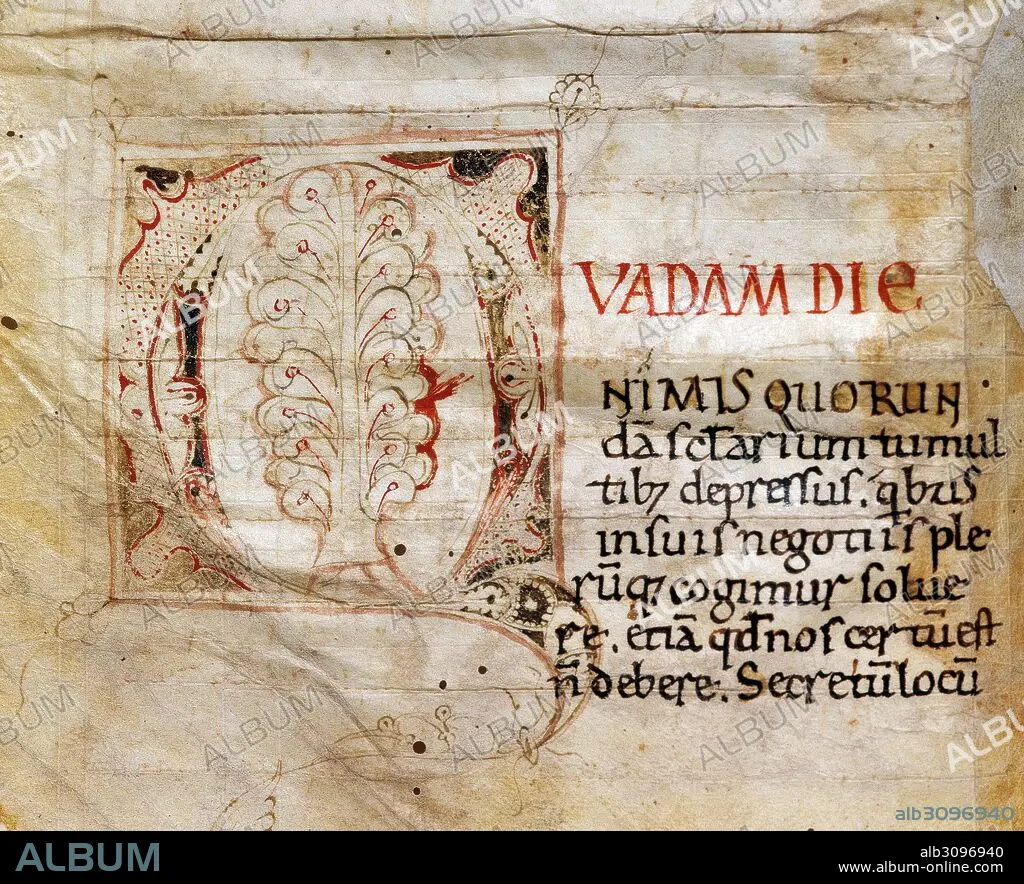 QVADAM DIE
NIMIS QUORUN
dā sc̄lariumtumul
tibꝫ depressus. q̇bus
insuis negotiis ple
rūqꝫ cogimur solue
re. etiā qd̄ nos certū est
n̄ debere. Secretū locū
ALBUM
alb3096940
alb3096940
www.album-online.com